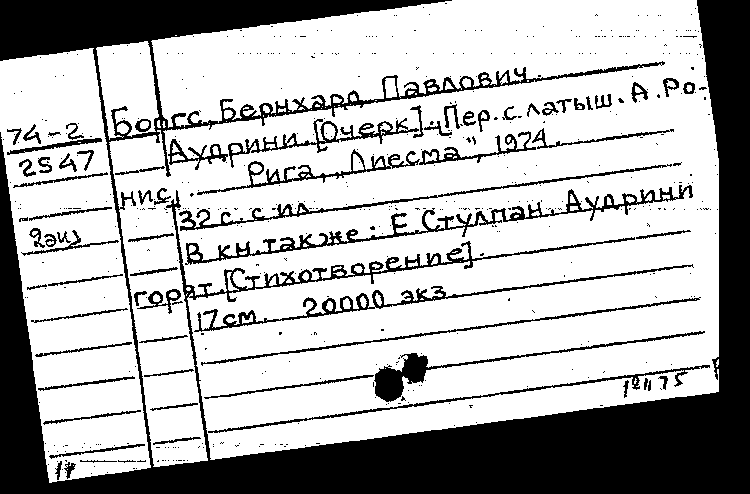 Боргс, Бернхард Павлович.
74-2
Аудрини. [Очерк]. [Пер. с латыш. А. Ро-
2547
нис]. Рига, „Лиесма", 1974.
32 с. с ил.
2экз
В кн. также: Е. Стулпан. Аудрини
горят. [Стихотворение].
17см. 20000 экз.